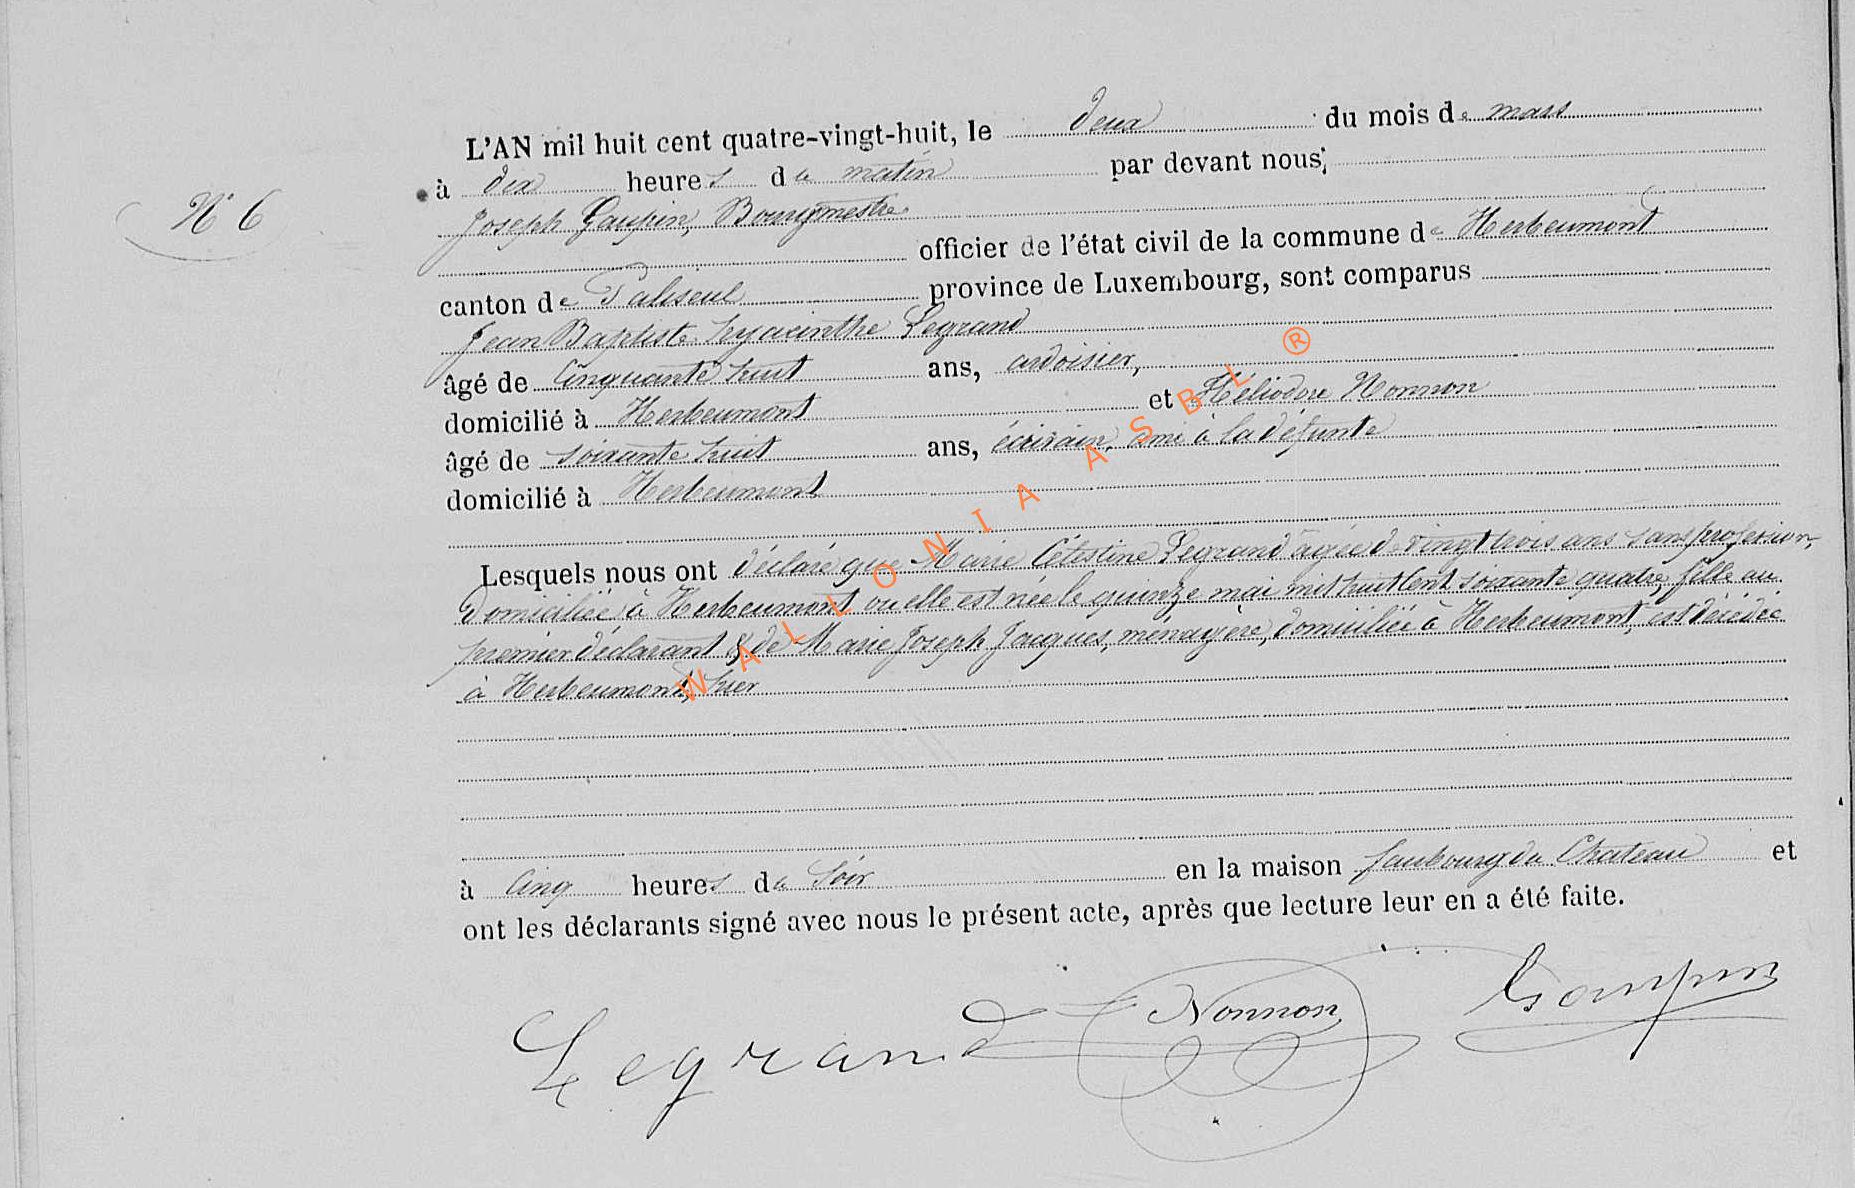 L'AN mil huit cent quatre-vingt-huit, le deux du mois de mars
à dix heures du matin par devant nous,
N° 6
Joseph Gaupin, Bourgmestre
officier de l'état civil de la commune de Herbeumont
canton de Paliseul province de Luxembourg, sont comparus
Jean Baptiste hyacinthe Legrand
âgé de Cinquante huit ans, ardoisier,
domicilié à Herbeumont et Héliodore Nonnon
âgé de soixante huit ans, écrivain, ami à la défunte
domicilié à Herbeumont
Lesquels nous ont déclaré que Marie Célestine Legrand agée de vingt trois ans sans profession,
domiciliée à Herbeumont ou elle est née le quinze mai mil huit cent soixante quatre, fille au
premier déclarant & de Marie Joseph Jacques, ménagère, domiciliée à Herbeumont, est décédée
à Herbeumont, hier
à Cinq heures du Soir en la maison faubourg du Chateau et
ont les déclarants signé avec nous le présent acte, après que lecture leur en a été faite.
Legrand Nonnon Gaupin
WALLONIA ASBL ®